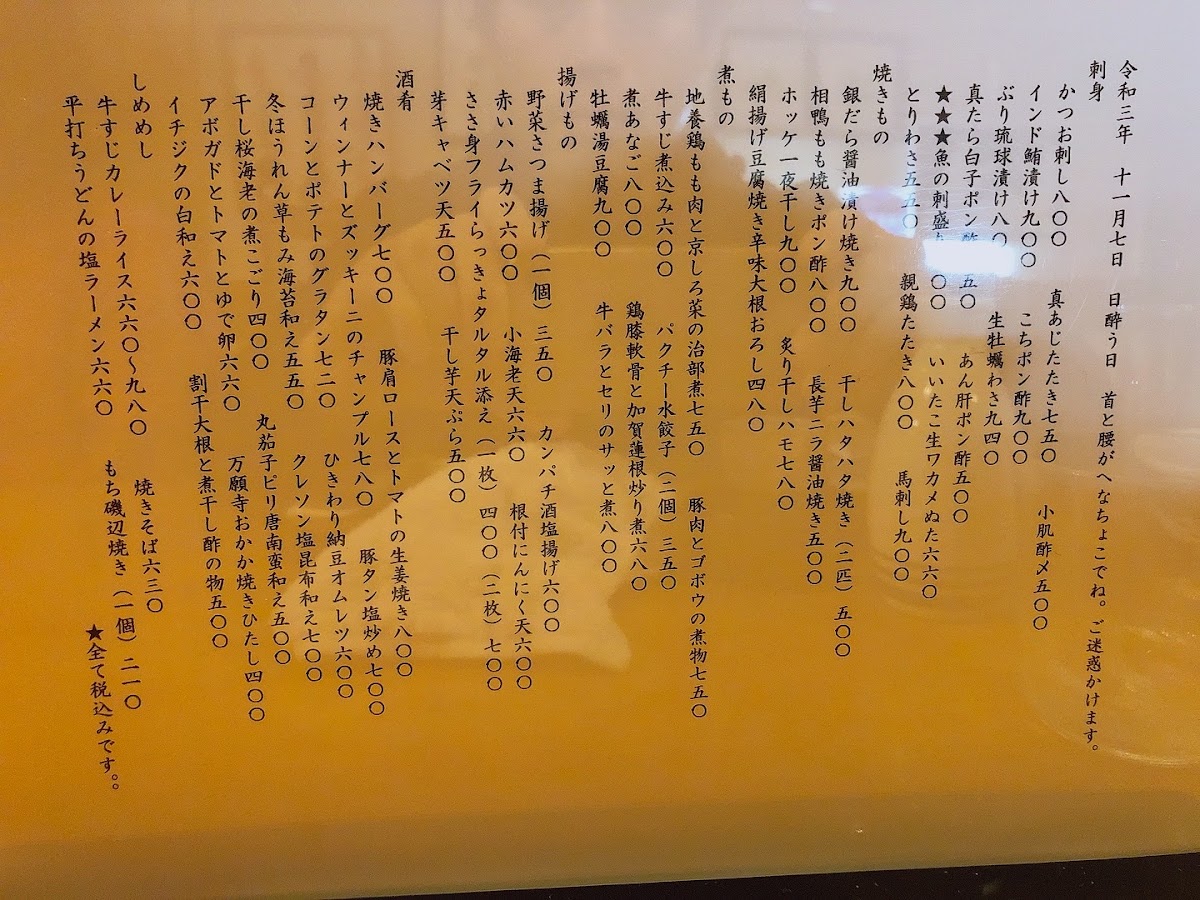 令和三年　十一月七日　日酔う日　首と腰がへなちょこでね。ご迷惑かけます。
刺身
かつお刺し八〇〇　真あじたたき七五〇　小肌酢〆五〇〇
インド鮪漬け九〇〇　こちポン酢九〇〇
ぶり琉球漬け八〇　生牡蠣わさ九四〇
真たら白子ポン酢　五〇　あん肝ポン酢五〇〇
★★★魚の刺盛　〇〇　いいたこ生ワカメぬた六六〇
とりわさ五五〇　親鶏たたき八〇〇　馬刺し九〇〇
焼きもの
銀だら醤油漬け焼き九〇〇　干しハタハタ焼き（二匹）五〇〇
相鴨もも焼きポン酢八〇〇　長芋ニラ醤油焼き五〇〇
ホッケ一夜干し九〇〇　炙り干しハモ七八〇
絹揚げ豆腐焼き辛味大根おろし四八〇
煮もの
地養鶏もも肉と京しろ菜の治部煮七五〇　豚肉とゴボウの煮物七五〇
牛すじ煮込み六〇〇　パクチー水餃子（二個）三五〇
煮あなご八〇〇　鶏膝軟骨と加賀蓮根炒り煮六八〇
牡蠣湯豆腐九〇〇　牛バラとセリのサッと煮八〇〇
揚げもの
野菜さつま揚げ（一個）三五〇　カンパチ酒塩揚げ六〇〇
赤いハムカツ六〇〇　小海老天六六〇　根付にんにく天六〇〇
ささ身フライらっきょタルタル添え（一枚）四〇〇（二枚）七〇〇
芽キャベツ天五〇〇　干し芋天ぷら五〇〇
酒肴
焼きハンバーグ七〇〇　豚肩ロースとトマトの生姜焼き八〇〇
ウィンナーとズッキーニのチャンプル七八〇　豚タン塩炒め七〇〇
コーンとポテトのグラタン七二〇　ひきわり納豆オムレツ六〇〇
冬ほうれん草もみ海苔和え五五〇　クレソン塩昆布和え七〇〇
干し桜海老の煮こごり四〇〇　丸茄子ピリ唐南蛮和え五〇〇
アボガドとトマトとゆで卵六六〇　万願寺おかか焼きひたし四〇〇
イチジクの白和え六〇〇　割干大根と煮干し酢の物五〇〇
しめめし
牛すじカレーライス六六〇〜九八〇　焼きそば六三〇
平打ちうどんの塩ラーメン六六〇　もち磯辺焼き（一個）二一〇
★全て税込みです。。